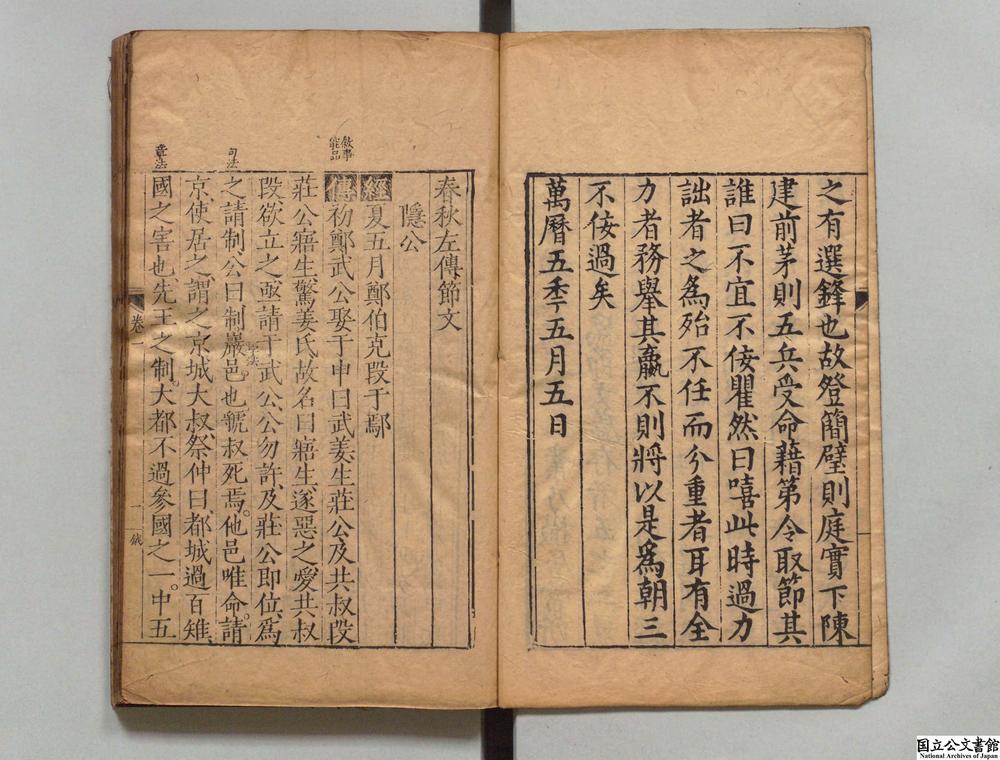 之有選鋒也故登簡壁則庭實下陳
建前茅則五兵受命藉第令取節其
誰曰不宜不佞瞿然曰嘻此時過力
詘者之爲殆不任而兮重者耳有全
力者務舉其贏不則將以是爲朝三
不佞過矣
萬曆五秊五月五日
春秋左傳節文
隱公
經夏五月鄭伯克段于鄢
敘事
能品
傳初鄭武公娶于申曰武姜生莊公及共叔段
莊公寤生驚姜氏故名曰寤生遂惡之愛共叔
段欲立之亟請于武公公勿許及莊公即位爲
句法
之請制公曰制巖邑也虢叔死焉他邑唯命請
京使居之謂之京城大叔祭仲曰都城過百雉
章法
國之害也先王之制大都不過參國之一中五
卷一
一
国立公文書館
National Archives of Japan